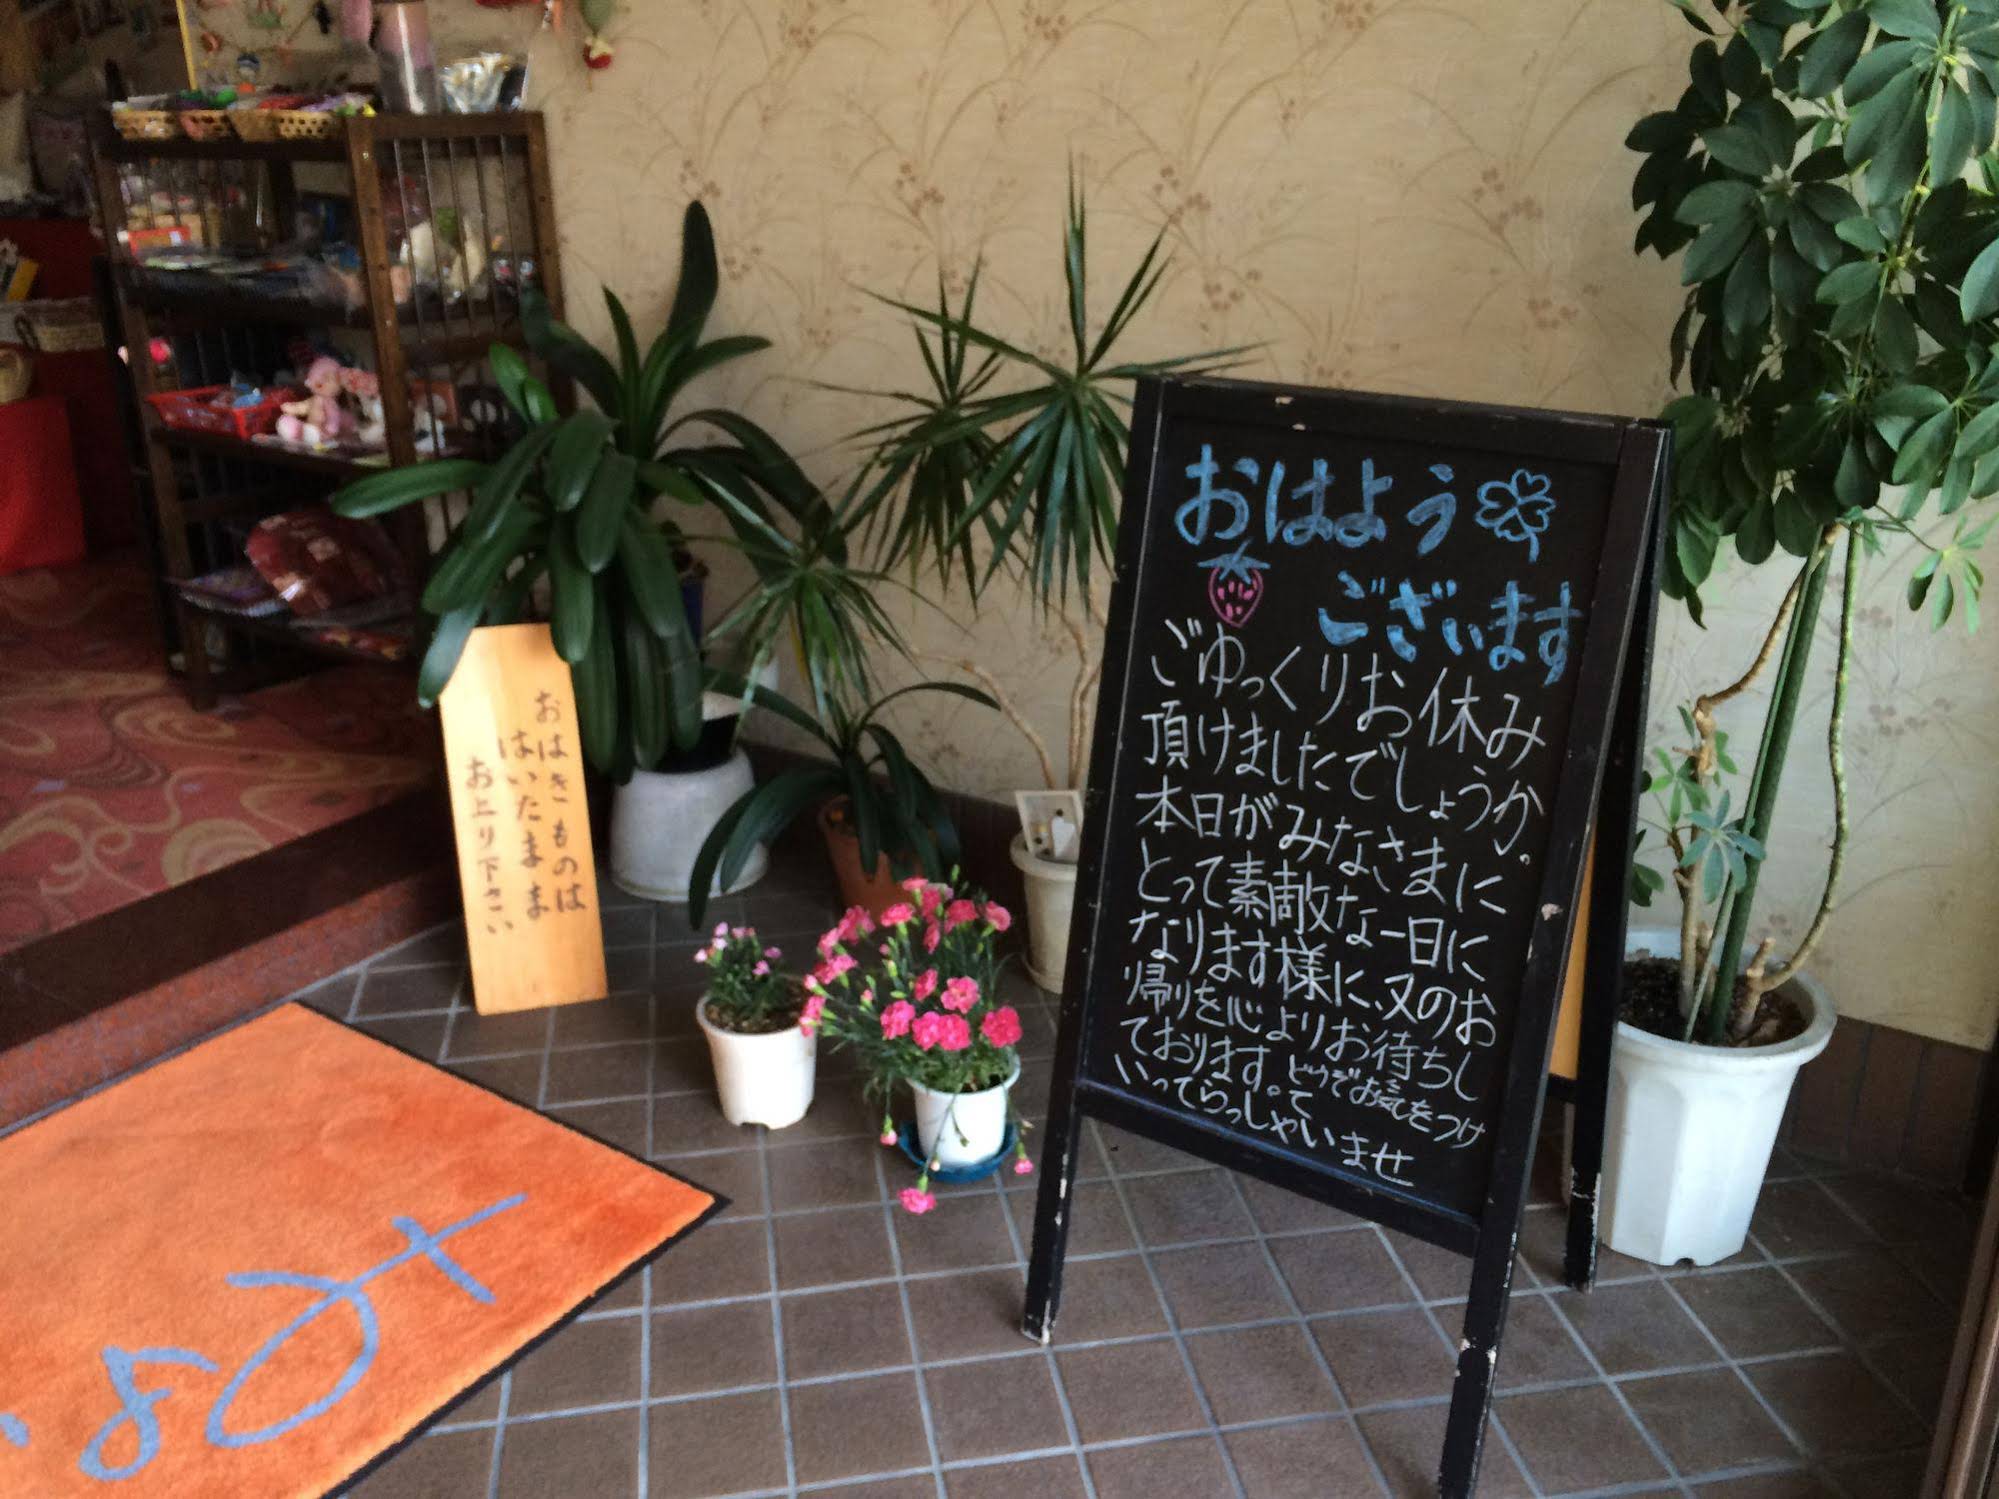 おはよう
ございます
ごゆっくりお休み
頂けましたでしょうか。
本日がみなさまに
とって素敵な一日に
なります様に、又のお
帰りを心よりお待ちし
ております。どうぞお気をつけ
て
いってらっしゃいませ
おはきものは
はいたまま
お上り下さい